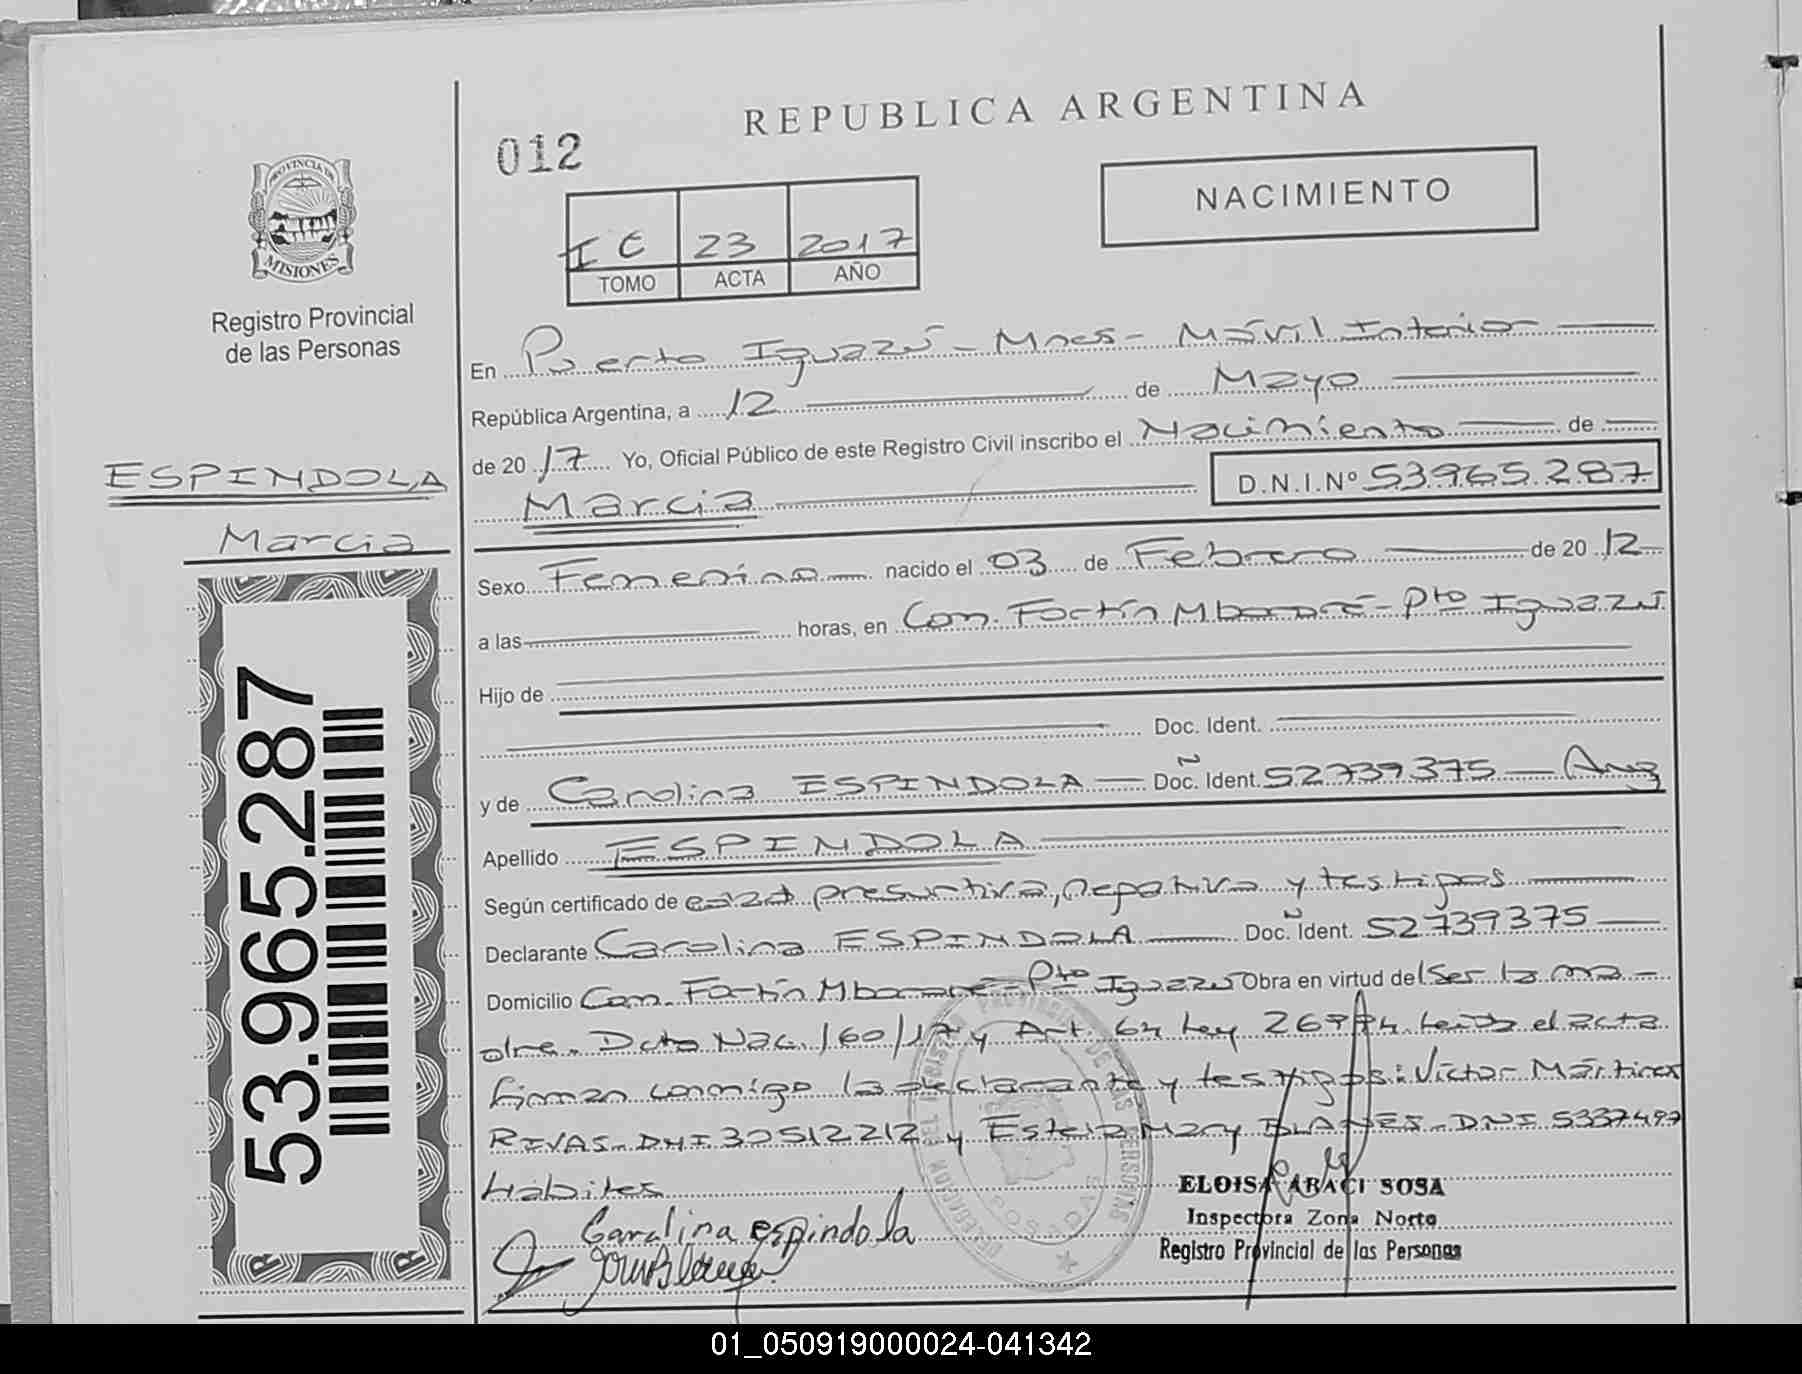 REPUBLICA ARGENTINA
012
NACIMIENTO
I C 23 2017
TOMO ACTA AÑO
PROVINCIA DE
MISIONES
Registro Provincial
de las Personas
ESPINDOLA
Marcia
53.965.287
En Puerto Iguazú - Mnes - Móvil Interior
República Argentina, a 12 de Mayo
de 2017 Yo, Oficial Público de este Registro Civil inscribo el Nacimiento de
Marcia D.N.I.Nº 53.965.287
Sexo Femenino nacido el 03 de Febrero de 2012
a las horas, en Com. Fortín Mbororé - Pto Iguazú
Hijo de
Doc. Ident.
y de Carolina ESPINDOLA Doc. Ident. 52739375 - Arg
Apellido ESPINDOLA
Según certificado de edad presuntiva, negativa y testigos
Declarante Carolina ESPINDOLA Doc. Ident. 52739375
Domicilio Com. Fortín Mbororé - Pto Iguazú Obra en virtud del Ser la ma-
dre. Dcto Nac. 160/17 y Art. 64 Ley 26994. Leída el acta
firman conmigo la declarante y testigos: Víctor Martires
RIVAS - DNI 30512212 y Estela Mary BLANES - DNI 5337497
Hábiles
Carolina espindola
ELOISA ARACI SOSA
Inspectora Zona Norte
Registro Provincial de las Personas
POSADAS
01_050919000024-041342